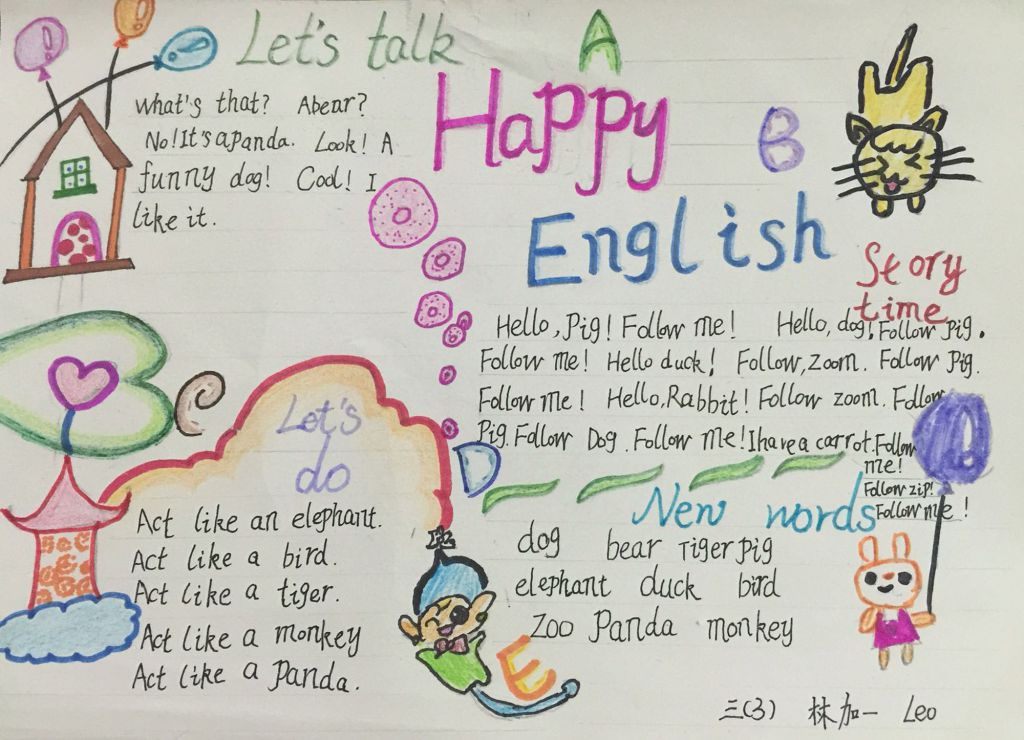 Let's talk
What's that? Abear?
No! It's a panda. Look! A
funny dog! Cool! I
like it.
A
Happy
B
English
Story
time
Hello, Pig! Follow me! Hello, dog! Follow pig.
Follow me! Hello duck! Follow, zoom. Follow Pig.
Follow me! Hello, Rabbit! Follow zoom. Follow
Pig. Follow Dog. Follow me! Ihave a carrot. Follow
me!
Follow zip!
Follow me!
Let's
do
Act like an elephant.
Act like a bird.
Act like a tiger.
Act like a monkey
Act like a Panda.
D
New words
dog bear Tiger pig
elephant duck bird
Zoo Panda monkey
E
三(3) 林加一 Leo